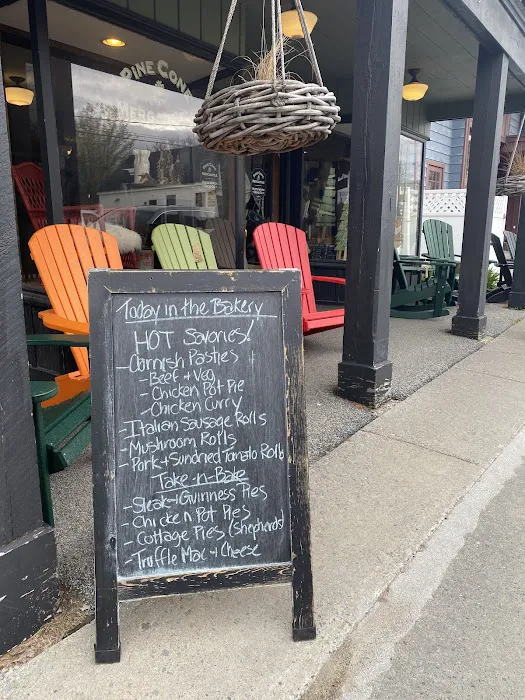 PINE CONE
&
Today in the Bakery
HOT Savories!
- Cornish Pasties
- Beef + Veg
- Chicken Pot Pie
- Chicken Curry
- Italian Sausage Rolls
- Mushroom Rolls
- Pork + Sundried Tomato Rolls
Take-n-Bake
- Steak + Guinness Pies
- Chicken Pot Pies
- Cottage Pies (Shepherds)
- Truffle Mac + Cheese